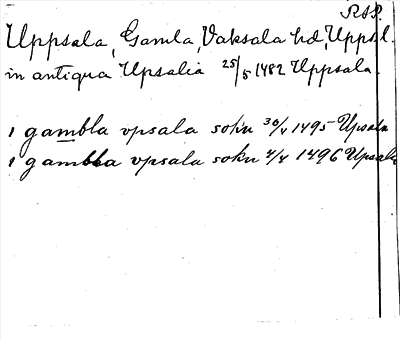 RAP.
Uppsala, Gamla, Vaksala hd, Uppsl.
in antiqua Upsalia 25/5 1482 Uppsala.
i gambla vpsala sokn 30/5 1495 Upsala
i gambla vpsala sokn 4/5 1496 Upsala